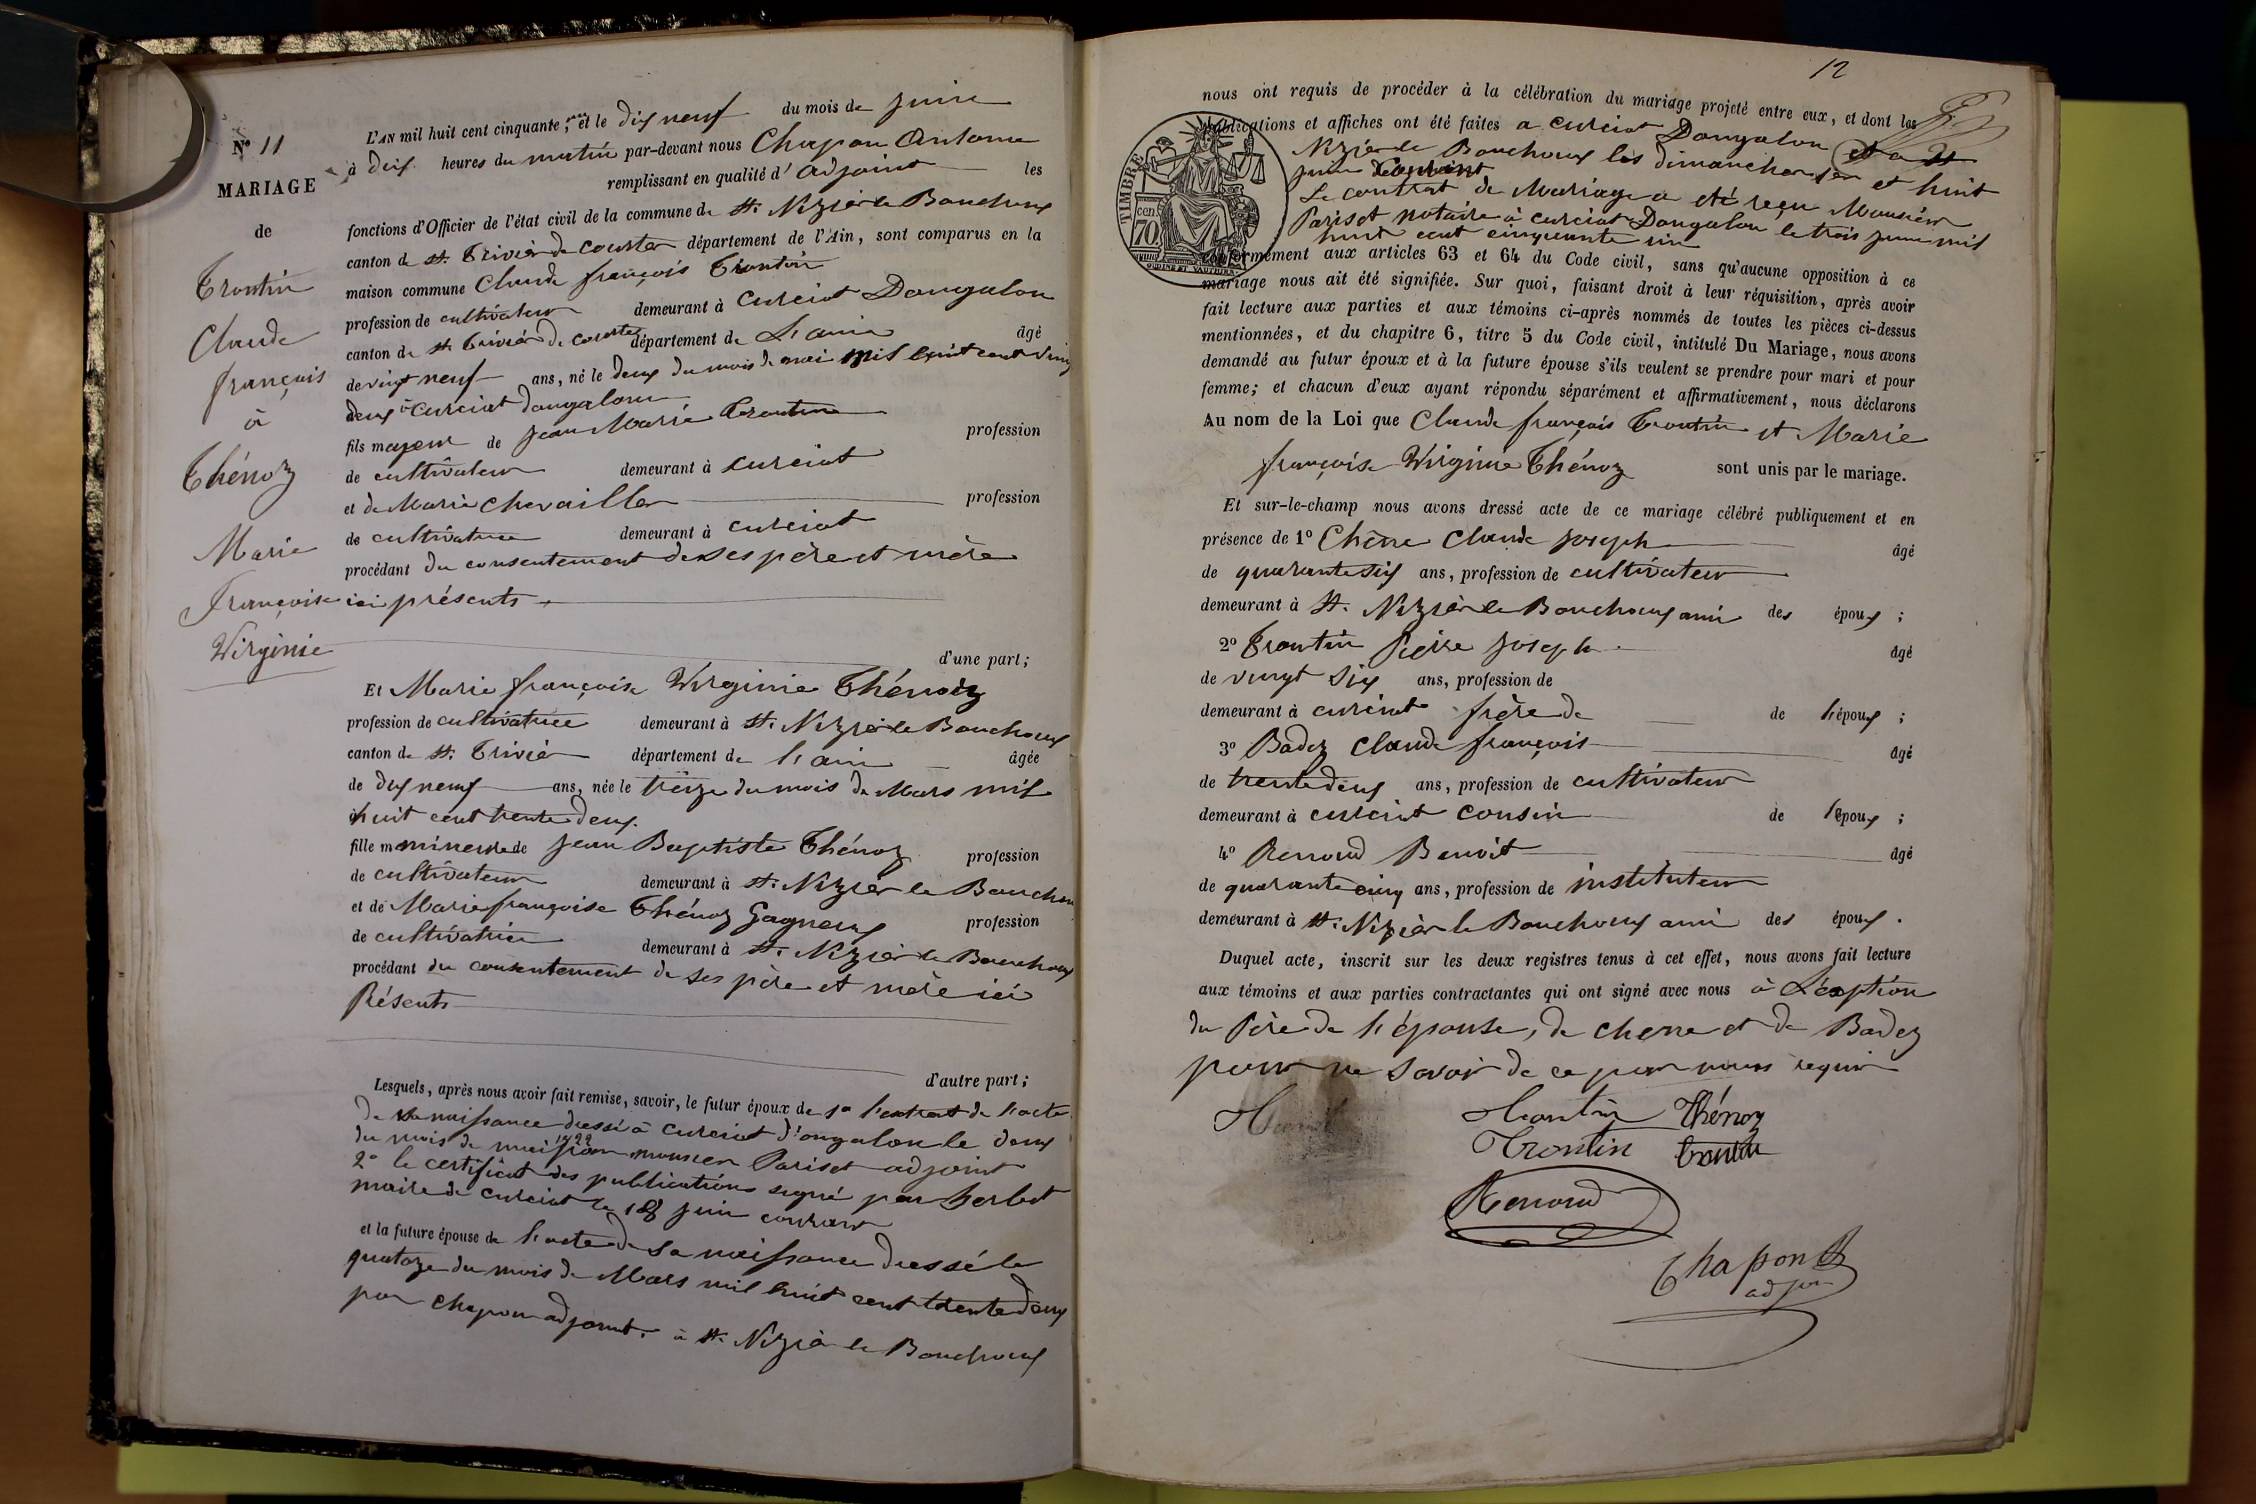 N° 11
MARIAGE
de
Trontin
Claude
françois
à
Thénoz
Marie
Françoise
Virginie
L'AN mil huit cent cinquante, un et le dix neuf du mois de juin
à dix heures du matin par-devant nous Chapon Antoine
remplissant en qualité d' adjoint les
fonctions d'Officier de l'état civil de la commune de St. Nizier le Bouchoux
canton de St. Trivier de courter département de l'Ain, sont comparus en la
maison commune Claude françois Trontin
profession de cultivateur demeurant à Curciat Dongalon
canton de St. Trivier de courtes département de L'ain âgé
de vingt neuf ans, né le deux du mois de mai mil huit cent vingt
deux à Curciat dongalon
fils majeur de jean Marie Trontin profession
de cultivateur demeurant à curciat
et de Marie Chevailler profession
de cultivatrice demeurant à curciat
procédant du consentement de ses père et mère
ici présents
d'une part;
Et Marie françoise Virginie Thénoz
profession de cultivatrice demeurant à St. Nizier le Bouchoux
canton de St. Trivier département de l'ain âgée
de dix neuf ans, née le treize du mois de Mars mil
huit cent trente deux.
fille mineure de jean Baptiste Thénoz profession
de cultivateur demeurant à St. Nizier le Bouchoux
et de Marie françoise Thénoz Gagneux profession
de cultivatrice demeurant à St. Nizier le Bouchoux
procédant du consentement de ses père et mère ici
Présents
d'autre part;
Lesquels, après nous avoir fait remise, savoir, le futur époux de 1° l'extrait de l'acte
de sa naissance dressé à curciat d'ongalon le deux
du mois de mai 1822 par monsieur Pariset adjoint
2° le certificat des publications signé par Herbet
maire de curciat le 18 juin courant
et la future épouse de l'acte de sa naissance dressé le
quatoze du mois de Mars mil huit cent trente deux
par chapon adjoint. à St. Nizier le Bouchoux
12
nous ont requis de procéder à la célébration du mariage projeté entre eux, et dont les
publications et affiches ont été faites a curciat Dongalon et a St
Nizier le Bouchoux les dimanches 1er et huit
juin courant
Le contrat de Mariage a été reçu Monsieur
Pariset notaire à curciat Dongalon le trois juin mil
huit cent cinquante un
TIMBRE
70 cen.
conformément aux articles 63 et 64 du Code civil, sans qu'aucune opposition à ce
mariage nous ait été signifiée. Sur quoi, faisant droit à leur réquisition, après avoir
fait lecture aux parties et aux témoins ci-après nommés de toutes les pièces ci-dessus
mentionnées, et du chapitre 6, titre 5 du Code civil, intitulé Du Mariage, nous avons
demandé au futur époux et à la future épouse s'ils veulent se prendre pour mari et pour
femme; et chacun d'eux ayant répondu séparément et affirmativement, nous déclarons
Au nom de la Loi que Claude françois Trontin et Marie
françoise Virginie Thénoz sont unis par le mariage.
Et sur-le-champ nous avons dressé acte de ce mariage célébré publiquement et en
présence de 1° Chêne Claude joseph âgé
de quarante six ans, profession de cultivateur
demeurant à St. Nizier le Bouchoux ami des époux ;
2° Trontin Pierre joseph âgé
de vingt six ans, profession de
demeurant à curciat frère de de l'époux ;
3° Badez Claude françois âgé
de trente deux ans, profession de cultivateur
demeurant à curciat cousin de l'époux ;
4° Renoud Benoit âgé
de quarante cinq ans, profession de instituteur
demeurant à St. Nizier le Bouchoux ami des époux .
Duquel acte, inscrit sur les deux registres tenus à cet effet, nous avons fait lecture
aux témoins et aux parties contractantes qui ont signé avec nous à L'éxeption
du Père de l'épouse, de chene et de Badez
pour ne savoir de ce par nous requis
Trontin Thénoz
Trontin Trontin
Renoud
Chapon
adjoin